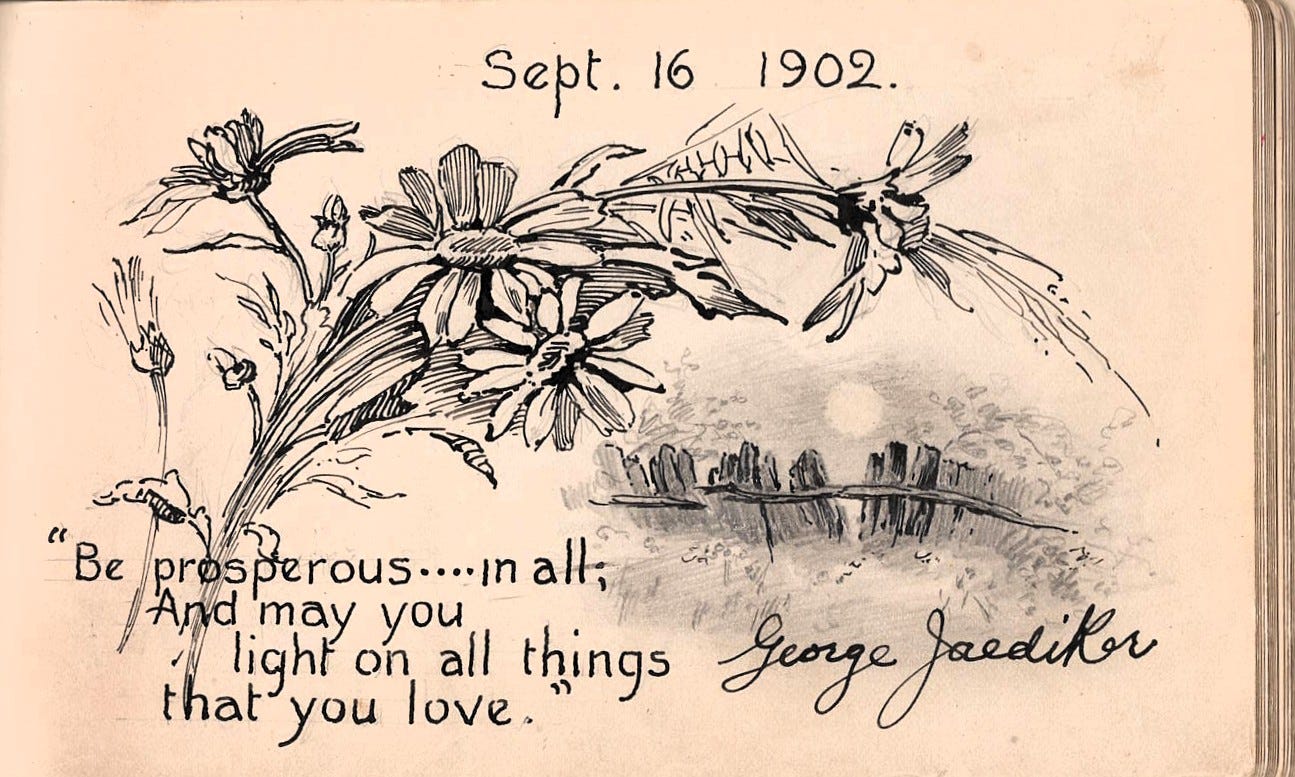 Sept. 16 1902.
"Be prosperous....in all;
And may you
light on all things
that you love."
George Jaediker